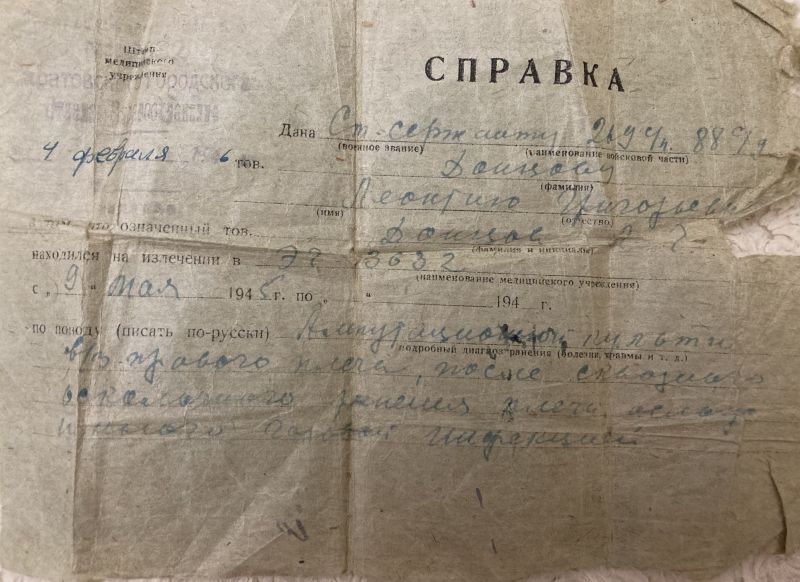 Штамп
медицинского
учреждения
СПРАВКА
Дана Ст. сержанту
(военное звание) (наименование войсковой части)
4 февраля 6 тов. Донцову
(фамилия)
Леонтию Григорьев
(имя) (отчество)
означенный тов. Донцов
(фамилия и инициалы)
находился на излечении в ЭГ 3632
(наименование медицинского учреждения)
с „9“ мая 1945 г. по „ “ 194 г.
по поводу (писать по-русски) Ампутационной культи
подробный диагноз ранения (болезни, травмы и т. д.)
в/з правого плеча, после сквозного
осколочного ранения плеча ослож
ненного газовой инфекцией